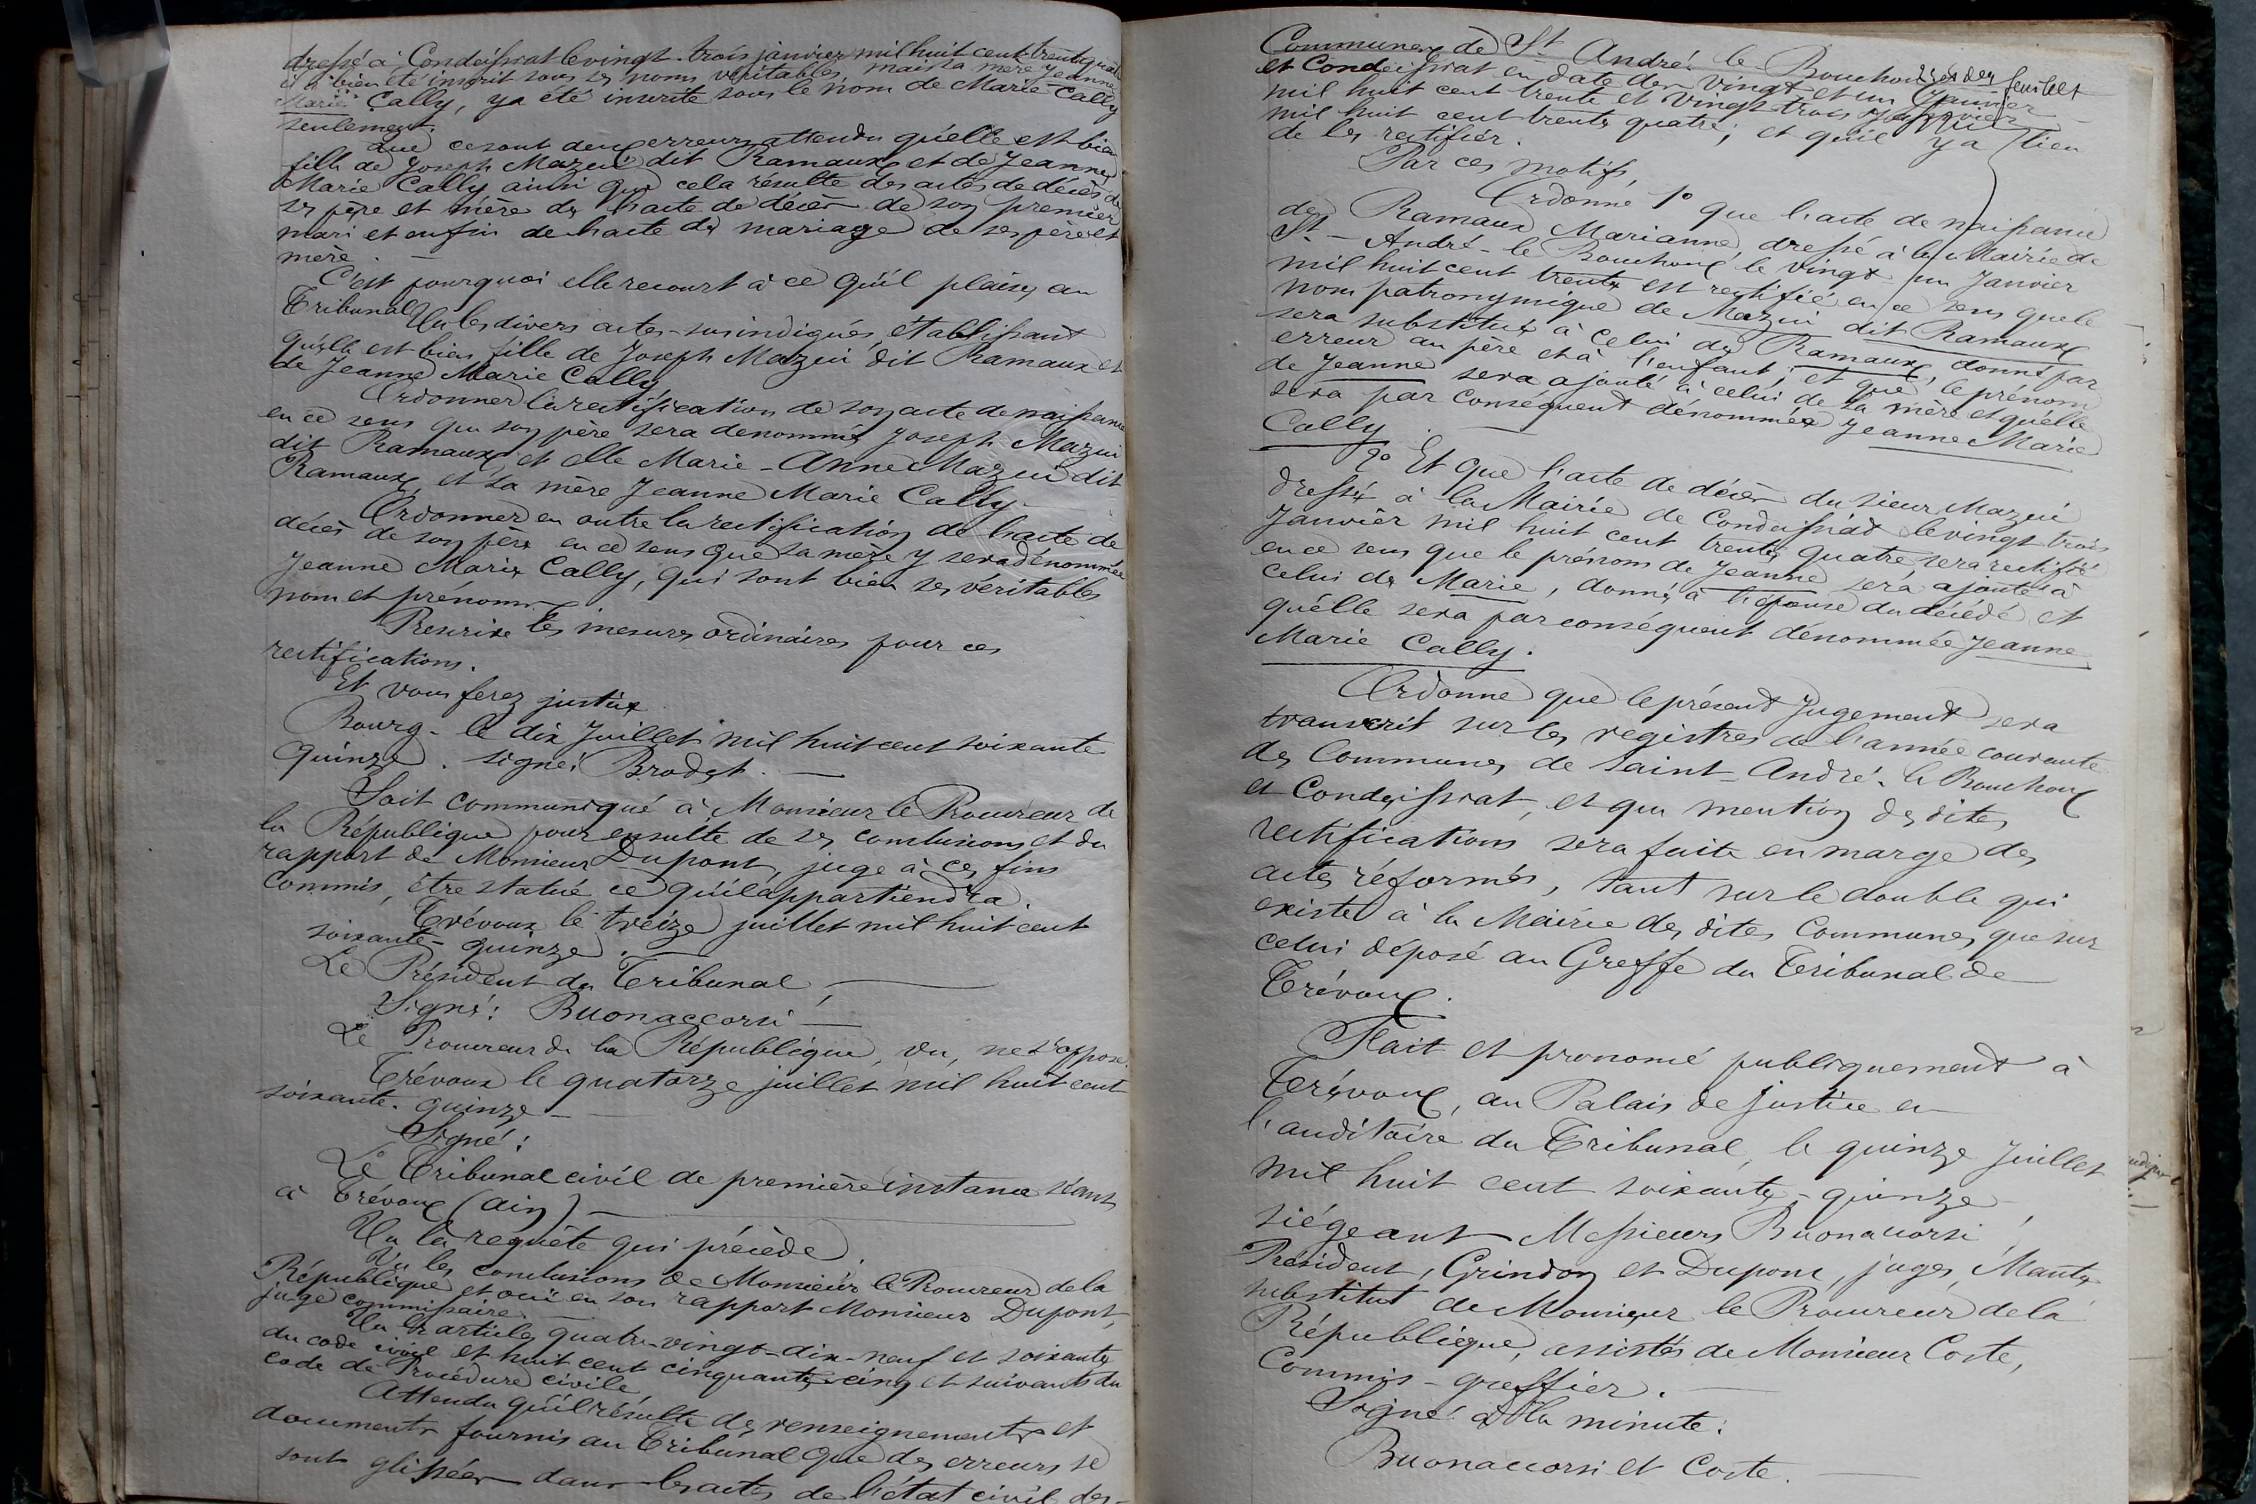 dressé à Condeissiat le vingt-trois janvier mil huit cent trente quatre
il a bien été inscrit sous ses noms véritables, mais sa mère Jeanne
Marie Cally, y a été inscrite sous le nom de Marie Cally
seulement.
Que ce sont deux erreurs attendu qu'elle est bien
fille de Joseph Mazui dit Ramaux et de Jeanne
Marie Cally ainsi que cela résulte des actes de décès de
ses père et mère de l'acte de décès de son premier
mari et enfin de l'acte de mariage de ses père et
mère.
C'est pourquoi elle recourt à ce qu'il plaise au
Tribunal
Vu les divers actes susindiqués, établissant
qu'elle est bien fille de Joseph Mazui dit Ramaux et
de Jeanne Marie Cally
Ordonner la rectification de son acte de naissance
en ce sens que son père sera dénommé Joseph Mazui
dit Ramaux, et elle Marie-Anne Mazui dit
Ramaux et sa mère Jeanne Marie Cally.
Ordonner en outre la rectification de l'acte de
décès de son père en ce sens que sa mère y sera dénommée
Jeanne Marie Cally, qui sont bien ses véritables
nom et prénoms.
Prescrire les mesures ordinaires pour ces
rectifications.
Et vous ferez justice
Bourg - le dix Juillet mil huit cent soixante
quinze. Signé: Brodet. —
Soit communiqué à Monsieur le Procureur de
la République pour ensuite de ses conclusions et du
rapport de Monsieur Dupont, juge à ces fins
commis, être statué ce qu'il appartiendra.
Trévoux le treize juillet mil huit cent
soixante-quinze. —
Le Président du Tribunal, —
Signé: Buonaccorsi —
Le Procureur de la République, vu, ne s'oppose.
Trévoux le quatorze juillet mil huit cent
soixante-quinze —
Signé:
Le Tribunal civil de première instance séant
à Trévoux (Ain) —
Vu la requête qui précède,
Vu les conclusions de Monsieur le Procureur de la
République et ouï en son rapport Monsieur Dupont,
juge commissaire —
Vu les articles quatre-vingt-dix-neuf et soixante
du code civil et huit cent cinquante-cinq et suivants du
code de Procédure civile,
Attendu qu'il résulte des renseignements et
documents fournis au Tribunal que des erreurs se
sont glissées dans les actes de l'état civil des
Communes de St André-le-Bouchoux
des feuillet
et Condeissiat en date des vingt et un Janvier
mil huit cent trente et vingt trois janvier
mil huit cent trente quatre; et qu'il y a lieu
de les rectifier.
Par ces motifs,
Ordonne 1° que l'acte de naissance
de Ramaux Marianne, dressé à la Mairie de
St-André-le Bouchoux le vingt-un Janvier
mil huit cent trente est rectifié en ce sens que le
nom patronymique de Mazui dit Ramaux
sera substitué à celui de Ramaux, donné par
erreur au père et à l'enfant; et que le prénom
de Jeanne sera ajouté à celui de la mère et qu'elle
sera par conséquent dénommée Jeanne Marie
Cally. —
2° Et que l'acte de décès du sieur Mazui
dressé à la Mairie de Condeissiat le vingt trois
Janvier mil huit cent trente quatre, sera rectifié
en ce sens que le prénom de Jeanne sera ajouté à
celui de Marie, donné à l'épouse du décédé et
qu'elle sera par conséquent dénommée Jeanne
Marie Cally.
Ordonne que le présent Jugement sera
transcrit sur les registres de l'année courante
des Communes de Saint-André-le Bouchoux
et Condeissiat, et que mention des dites
rectifications sera faite en marge des
actes réformés, tant sur le double qui
existe à la Mairie des dites Communes que sur
celui déposé au Greffe du Tribunal de
Trévoux.
Fait et prononcé publiquement à
Trévoux, au Palais de Justice en
l'auditoire du Tribunal, le quinze Juillet
mil huit cent soixante-quinze
siégeant Messieurs Buonaccorsi,
Président, Grindon et Dupont, juges, Manty
substitut de Monsieur le Procureur de la
République, assistés de Monsieur Coste,
Commis-greffier. —
Signé à la minute:
Buonaccorsi et Coste. —